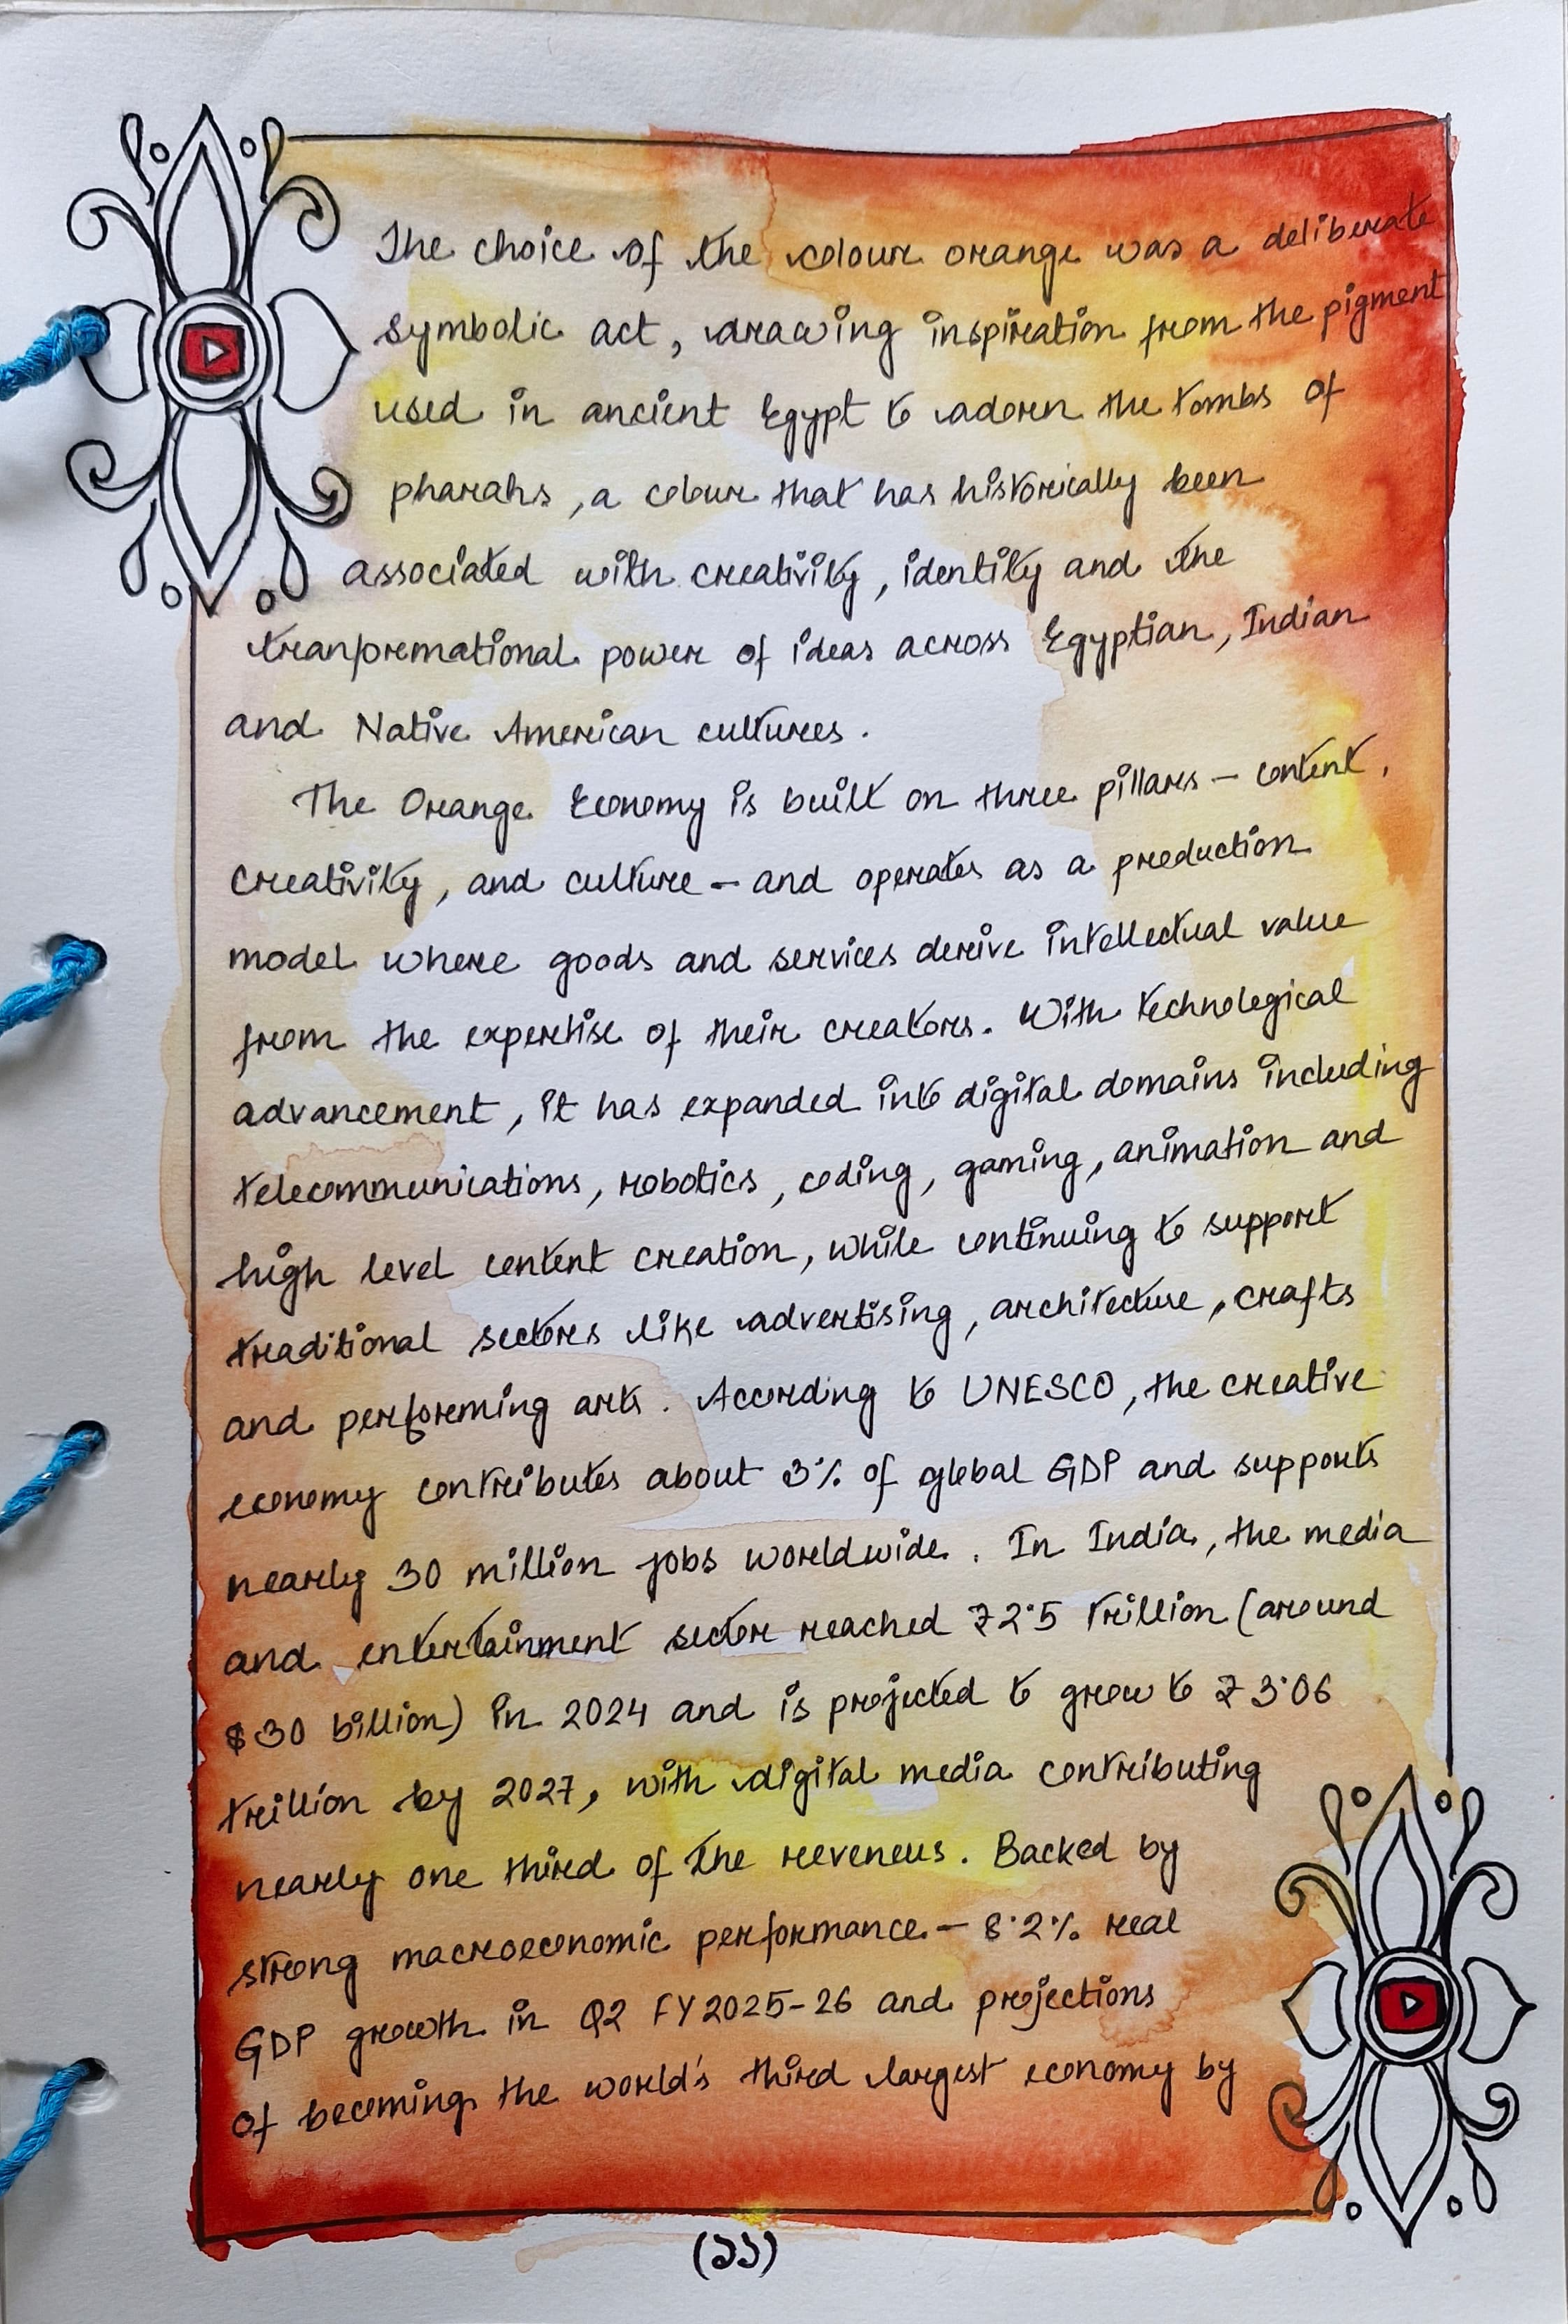 The choice of the colour orange was a deliberate
symbolic act, drawing inspiration from the pigment
used in ancient Egypt to adorn the tombs of
pharahs, a colour that has historically been
associated with creativity, identity and the
tranformational power of ideas across Egyptian, Indian
and Native American cultures.
The Orange Economy is built on three pillars – content,
creativity, and culture – and operates as a production
model where goods and services derive intellectual value
from the expertise of their creators. With technological
advancement, it has expanded into digital domains including
telecommunications, robotics, coding, gaming, animation and
high level content creation, while continuing to support
traditional sectors like advertising, architecture, crafts
and performing arts. According to UNESCO, the creative
economy contributes about 3% of global GDP and supports
nearly 30 million jobs worldwide. In India, the media
and entertainment sector reached ₹2·5 trillion (around
$30 billion) in 2024 and is projected to grow to ₹3·06
trillion by 2027, with digital media contributing
nearly one third of the reveneus. Backed by
strong macroeconomic performance – 8·2% real
GDP growth in Q2 FY2025-26 and projections
of becoming the world's third largest economy by
(১১)